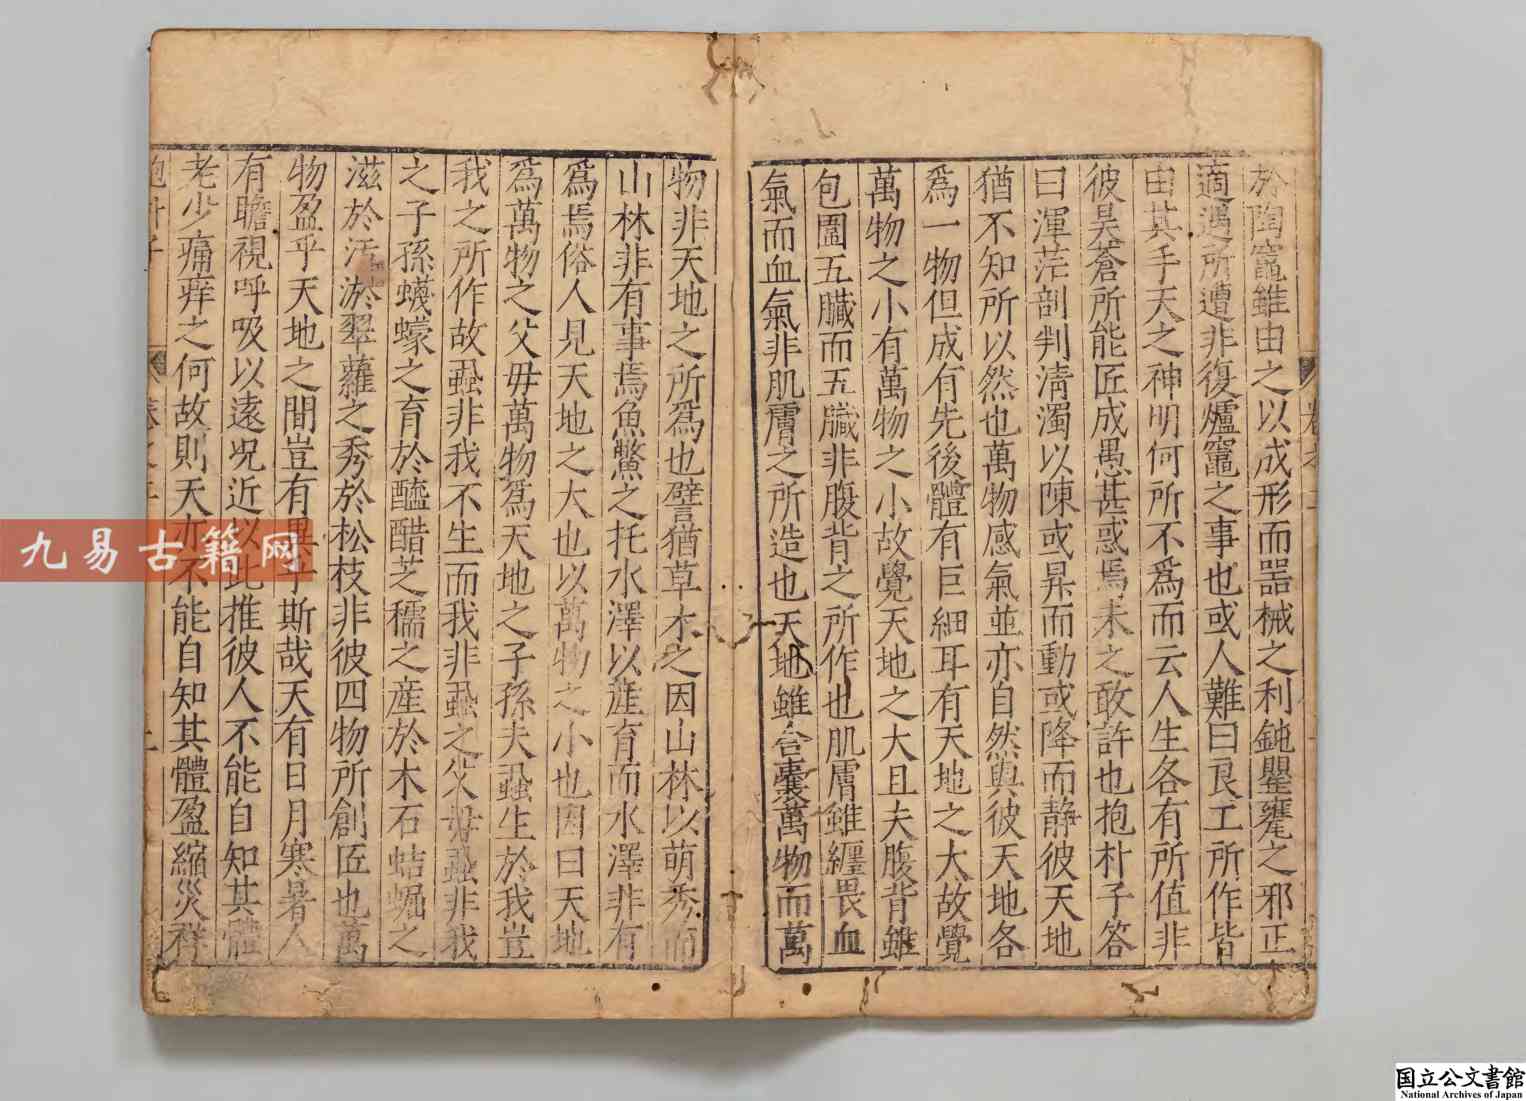 於陶竈雖由之以成形而器械之利鈍甖罋之邪正
適遇所遭非復爐竈之事也或人難曰良工所作皆
由其手天之神明何所不爲而云人生各有所值非
彼昊蒼所能匠成愚甚惑焉未之敢許也抱朴子答
曰渾茫剖判清濁以陳或昇而動或降而静彼天地
猶不知所以然也萬物感氣並亦自然與彼天地各
爲一物但成有先後體有巨細耳有天地之大故覺
萬物之小有萬物之小故覺天地之大且夫腹背雖
包圍五臟而五臟非腹背之所作也肌膚雖纏畏血
氣而血氣非肌膚之所造也天地雖含囊萬物而萬
物非天地之所爲也譬猶草木之因山林以萌秀而
山林非有事焉魚鱉之托水澤以産育而水澤非有
爲焉俗人見天地之大也以萬物之小也因曰天地
爲萬物之父毋萬物爲天地之子孫夫蝨生於我豈
我之所作故蝨非我不生而我非蝨之父毋蝨非我
之子孫蠛蠓之育於醯醋芝檽之産於木石蛣𧌑之
滋於汚淤翠蘿之秀於松枝非彼四物所創匠也萬
物盈乎天地之間豈有異乎斯哉天有日月寒暑人
有瞻視呼吸以遠况近以此推彼人不能自知其體
老少痛痒之何故則天亦不能自知其體盈縮災祥
抱朴子 卷之二
九易古籍网
国立公文書館
National Archives of Japan